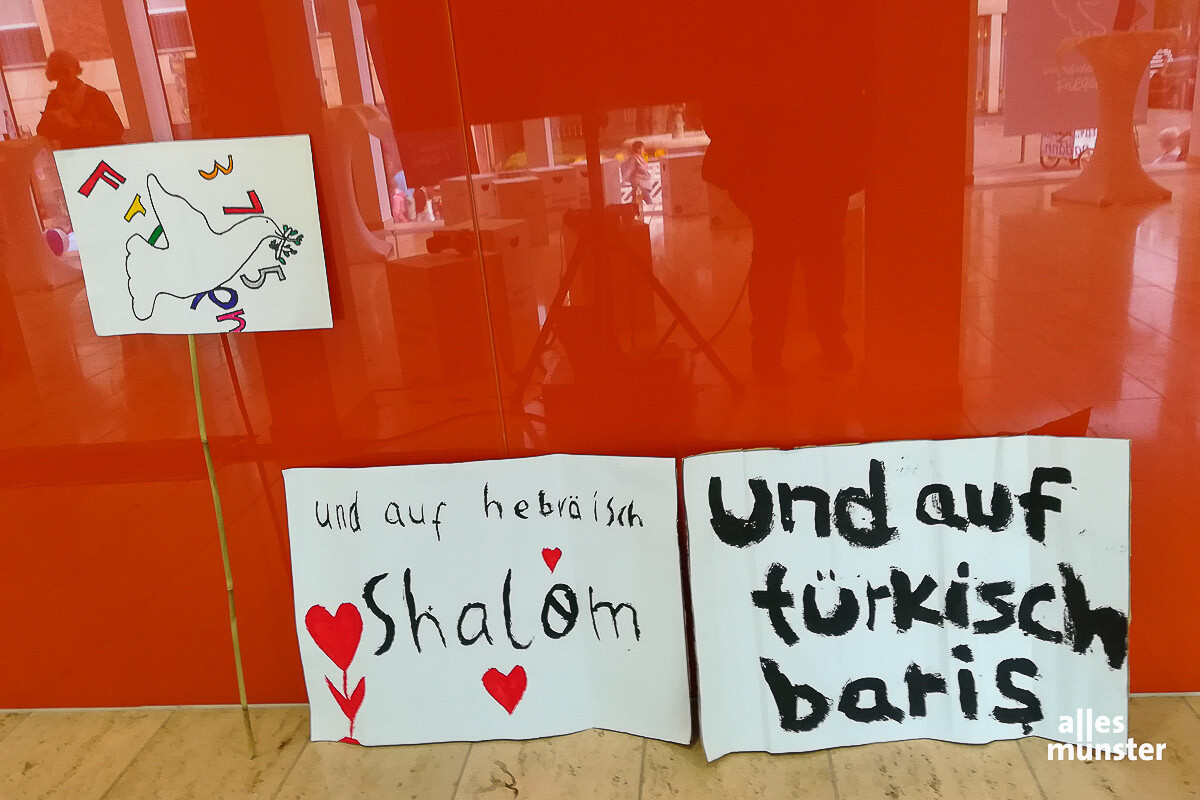 und auf hebräisch
Shalom
Und auf
türkisch
barış
alles
münster